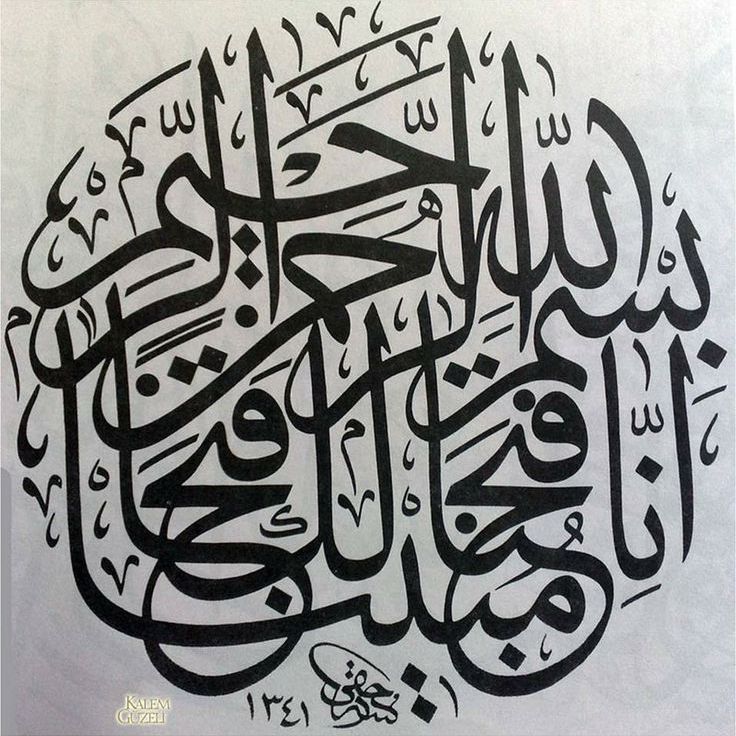 بسم الله الرحمن الرحيم
انا فتحنا لك فتحا مبينا
حقي
١٣٤١
KALEM
GÜZELİ